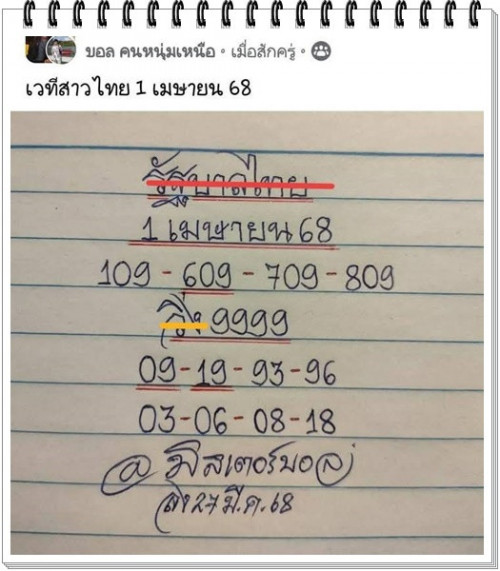 บอล คนหนุ่มเหนือ · เมื่อสักครู่ ·
เวทีสาวไทย 1 เมษายน 68
รัฐบาลไทย
1 เมษายน 68
109 - 609 - 709 - 809
วิ่ง 9999
09-19-93-96
03-06-08-18
@ มิสเตอร์บอล
ส่ง 27 มี.ค. 68